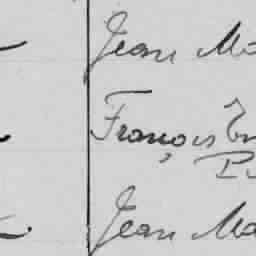 Jean Ma
François Em
P.
Jean Ma